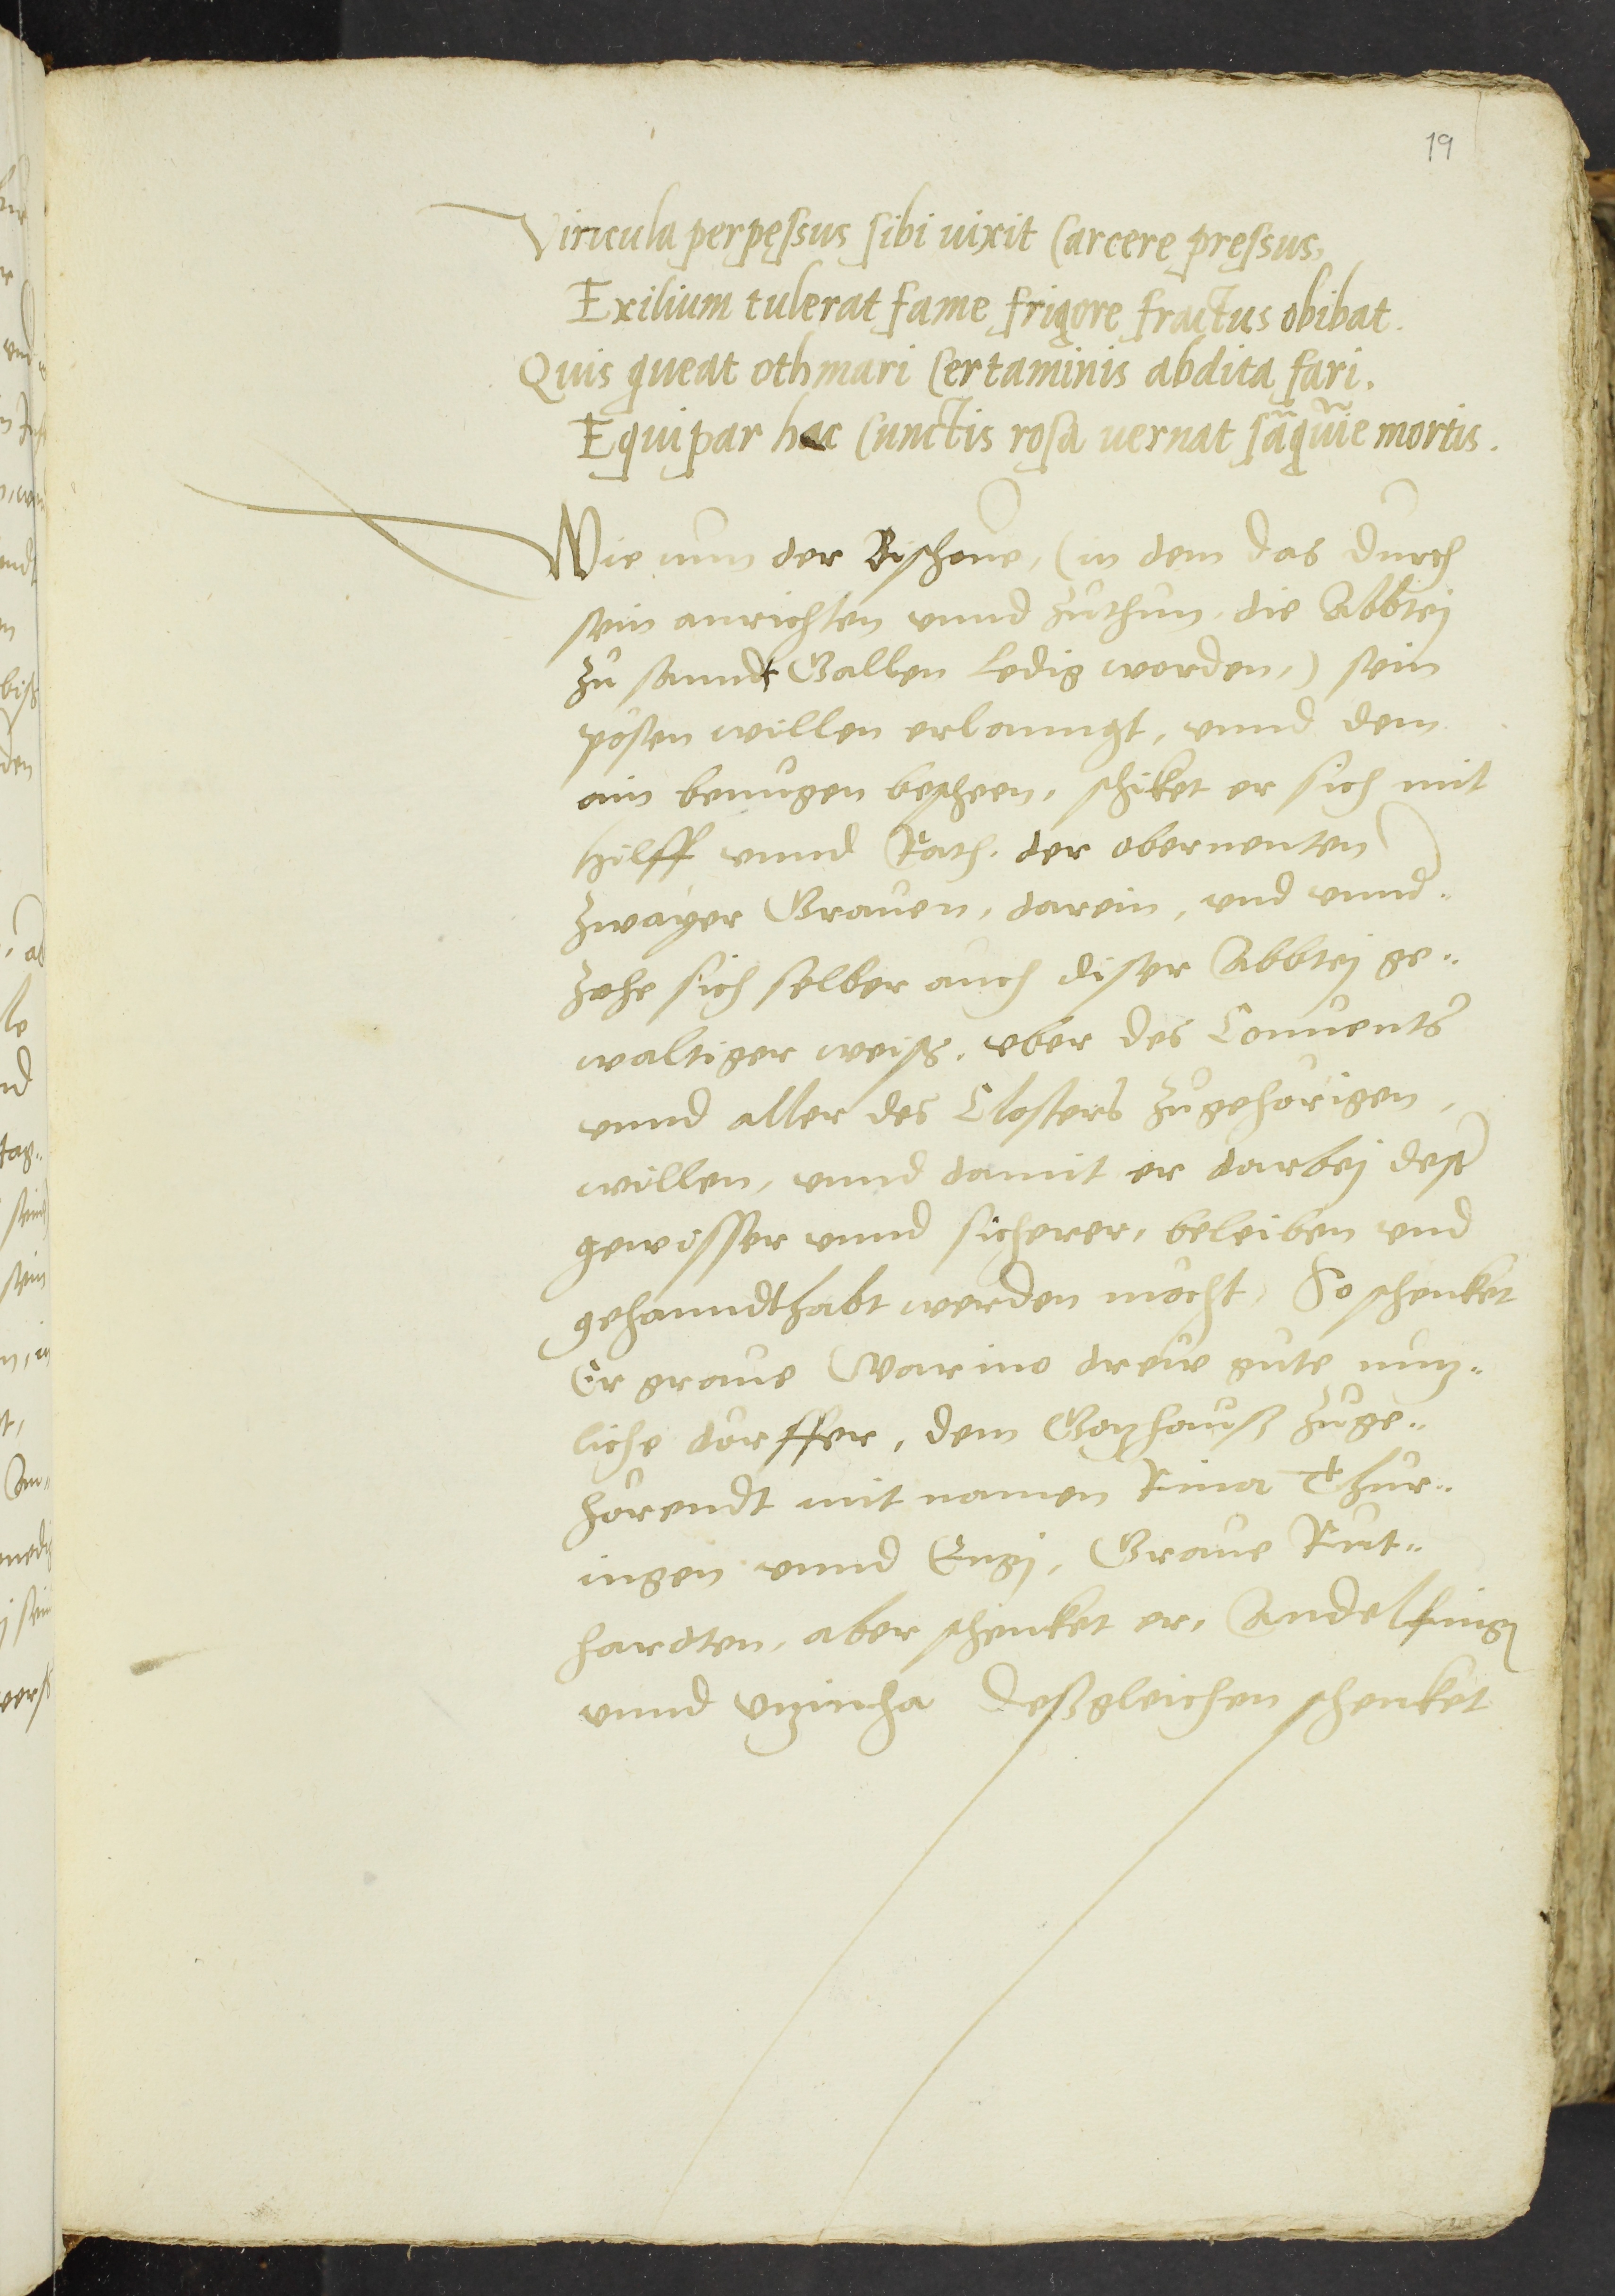 19
Vincula perpessus sibi uixit Carcere pressus,
Exilium tulerat fame frigore fractus obibat.
Quis queat othmari Certaminis abdita fari.
Equipar hac Cunctis rosa uernat sãquĩe mortis.
Wie nun der Bischoue, (in dem das durch
sein anrichten vnnd zuthun, die Abbtej
zu sanndt Gallen Ledig worden,) sein
pösen willen erlanngt, vnnd dem
ain benugen bescheen, schiket er sich mit
hilff vnnd Rath, der obernenten
zwayer Grauen, darein, vnd vnnd-
zohe sich selber auch diser Abbtej ge-
waltiger weiß, vber des Conuents
vnnd aller des Closters zugehörigen,
willen, vnnd damit er darbej dest
gewisser vnnd sicherer, beleiben vnd
gehanndthabt werden möcht, So schenket
Er graue Warino drew gute nutz-
liche dörffer, dem Gotzhauß zuge-
hörendt mit namen Rina Thür-
ingen vnnd Engj, Graue Rut-
hardten, aber schenket er, Andelfingen
vnnd Vtzincha Deßgleichen schenket